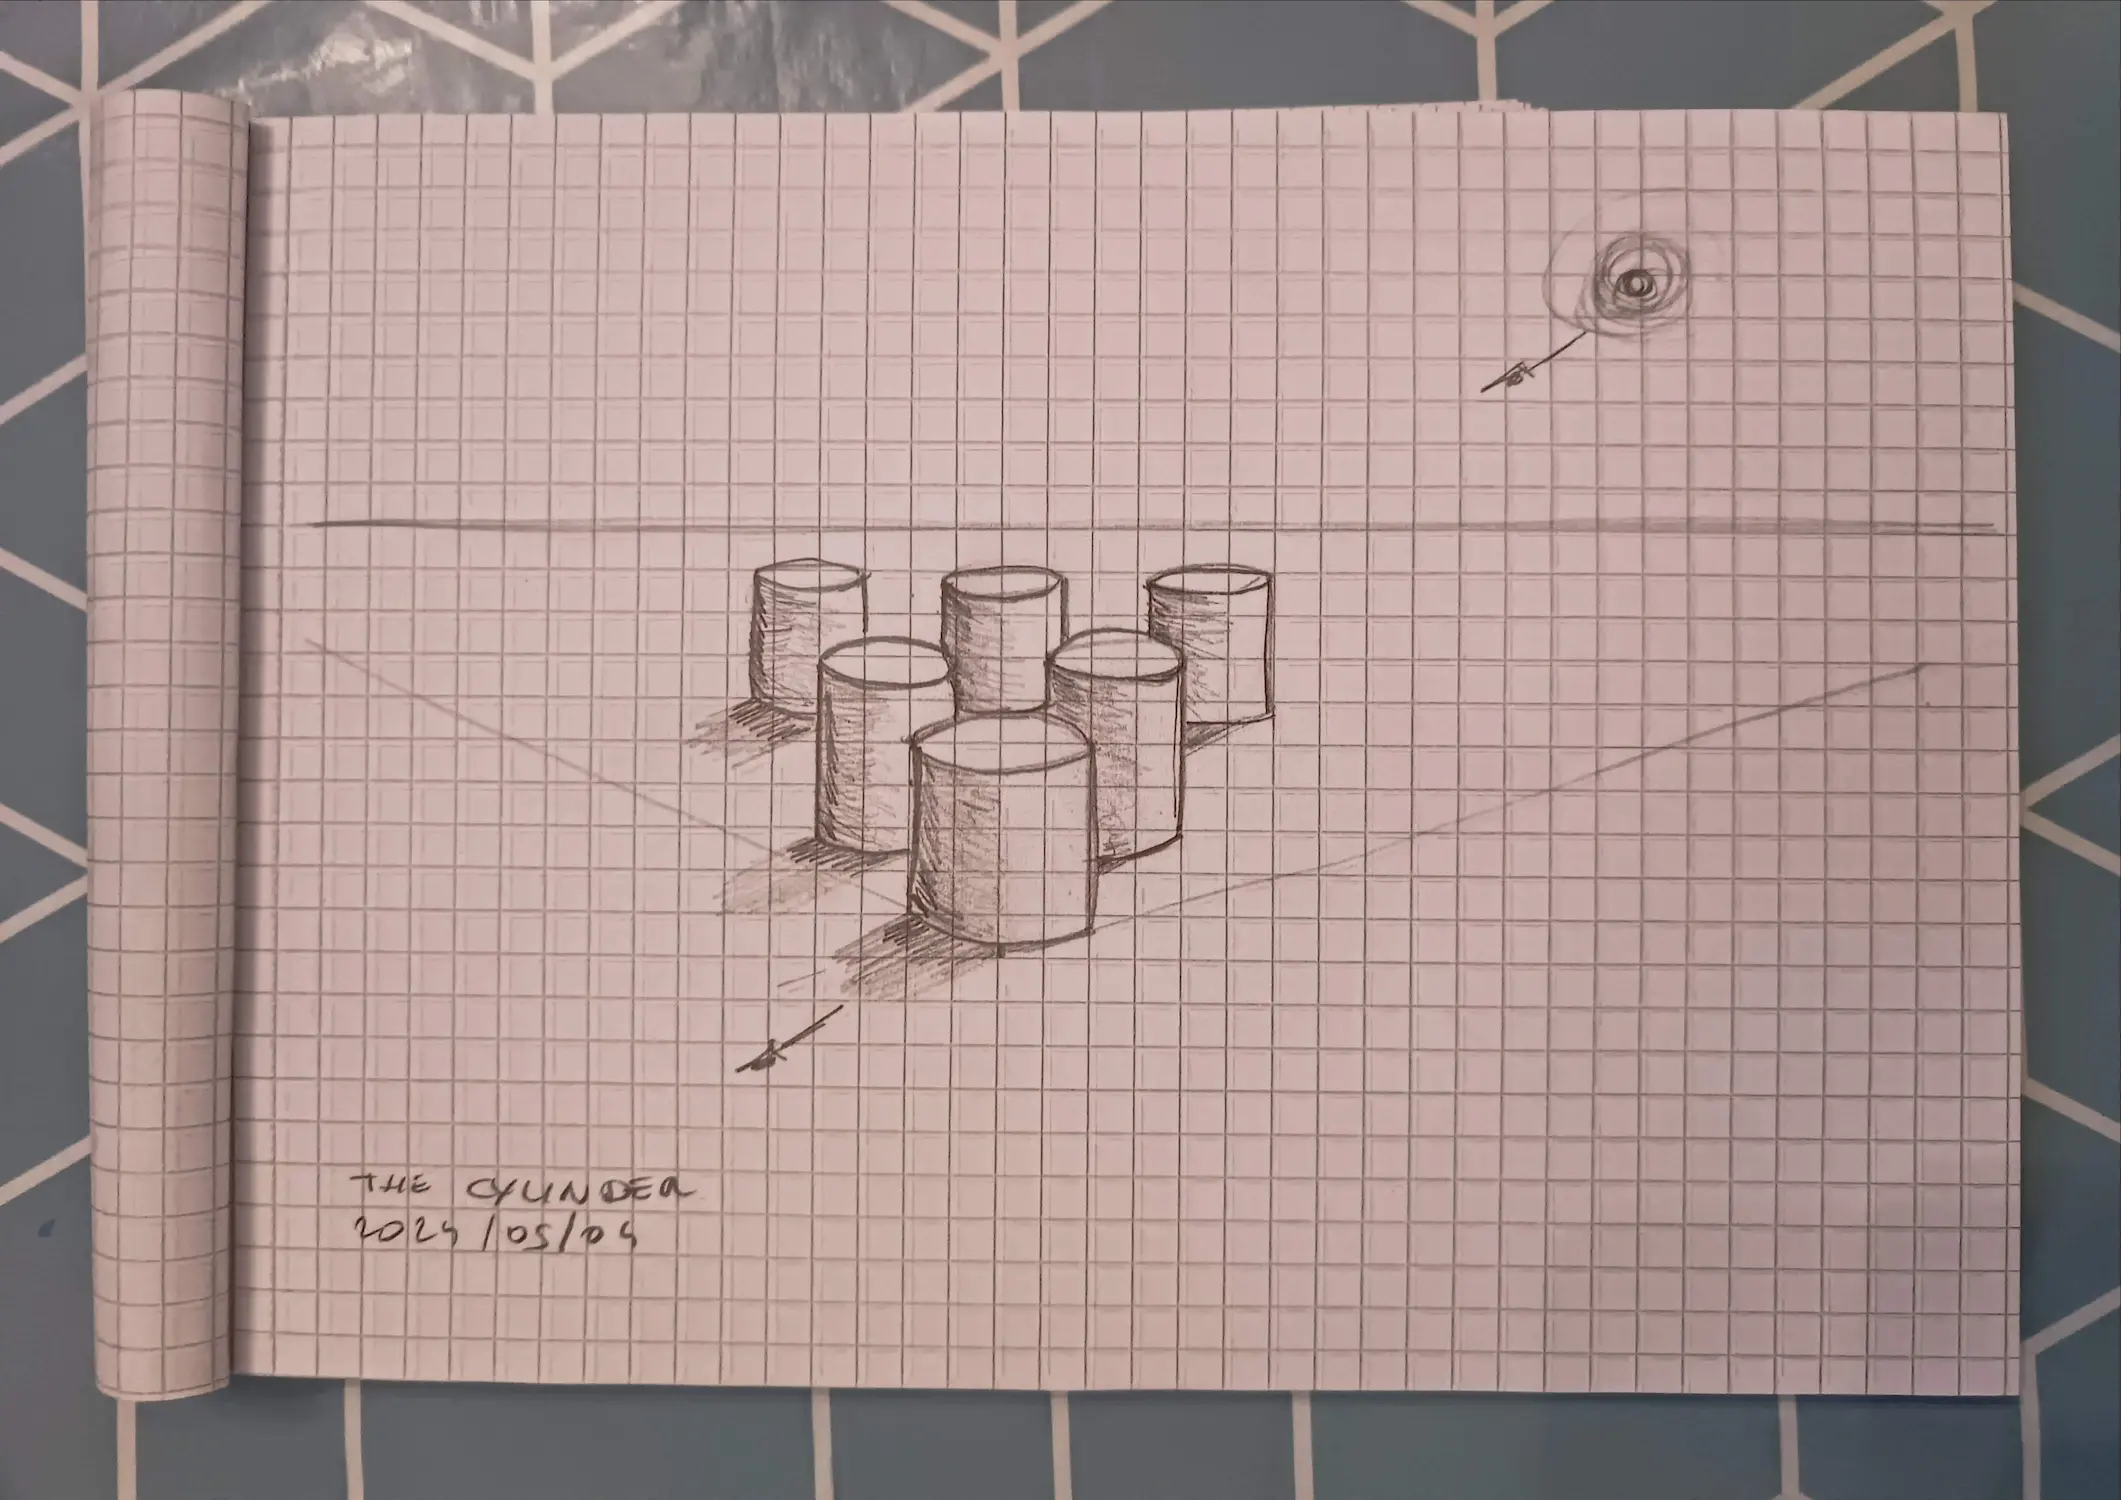 THE CYLINDER
2024/05/04